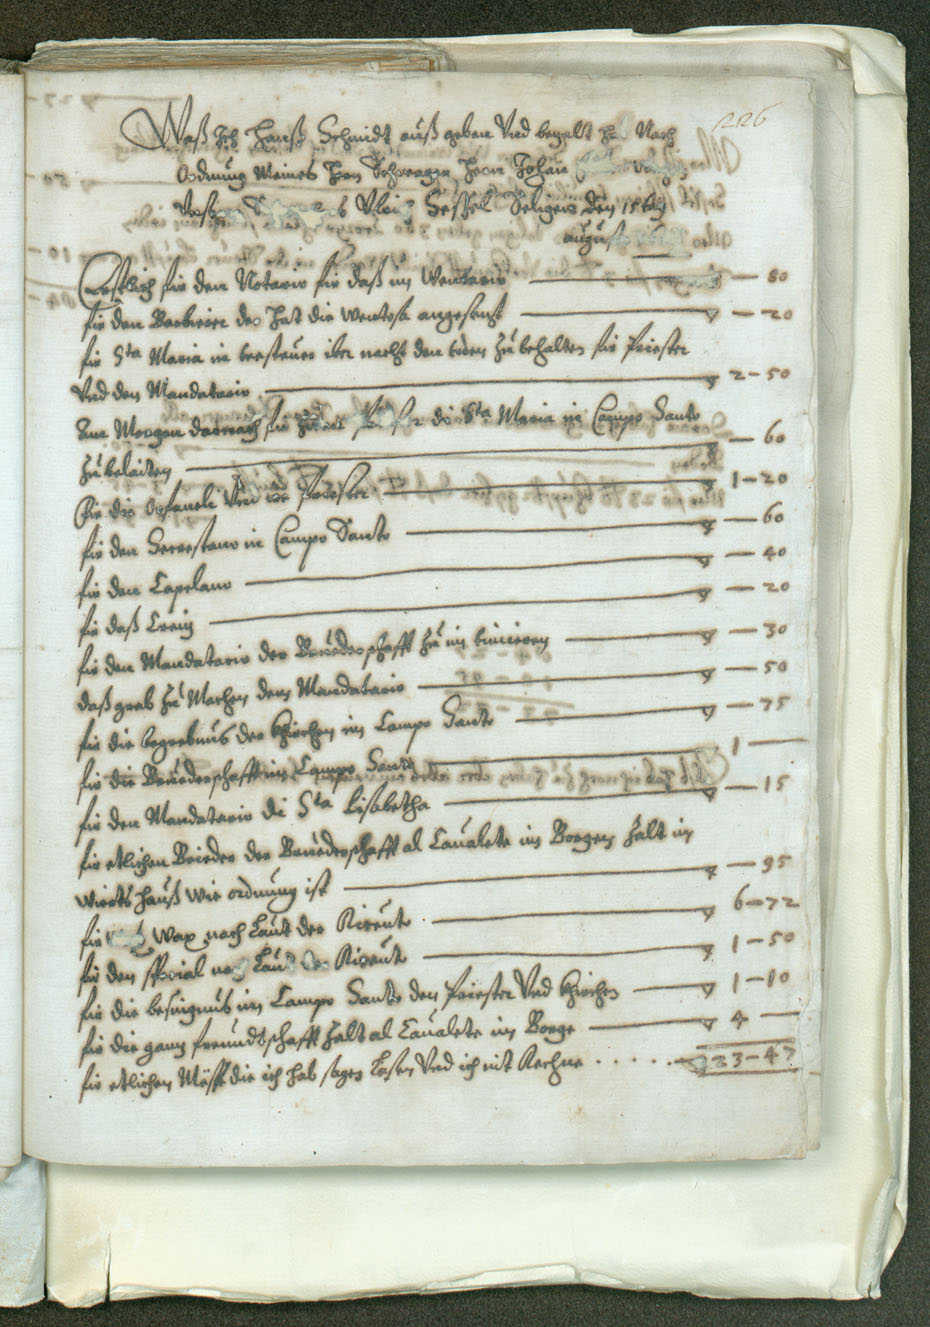 226
Waß Ich Hanß Schmidt auß geben Vnd bezalt ha Nach
Ordnung Meines Hern Schwagern Hern Johan
Vlrich Sessel Seligers den 15
august
Erstlich fir dem Notario fir daß im Wentario — 80
fir den Barbierer der hat die Wentosa angesetzt — 20
fir Sta Maria in iber nacht den boden zu behalten fir Priester
Vnd den Mandatario — 2 — 50
Zum Morgen darnach fir di Sta Maria in Campo Santo
zu belaiten — 60
Fir die Orfaneli Vnd Priester — 1 — 20
fir den Secrestano in Campo Santo — 60
fir den Capelano — 40
fir daß Creiz — 20
fir den Mandatario der Bruederschafft zu — 30
daß grab zu Machen dem Mandatario — 50
fir die begrebnus der Khirchen im Campo Santo — 75
fir die Bruederschafft im Campo Santo — 1 —
fir den Mandatario di Sta Lisabetha — 15
fir etlichen Brieder der Bruederschafft al Caualete im Borgen halt im
wierts hauß wie ordnung ist — 95
fir Wax nach Laut der Riceut — 6 — 72
fir den spezial nach Laut der Riceut — 1 — 50
fir die besingnus im Campo Santo den Priester Vnd Khirchen — 1 — 10
fir die ganz freundtschafft halt al Caualete im Borge — 4 —
fir etlichen Meß die ich hab sagen Lasen Vnd ich nit Rechne . . . . . . 23 — 47